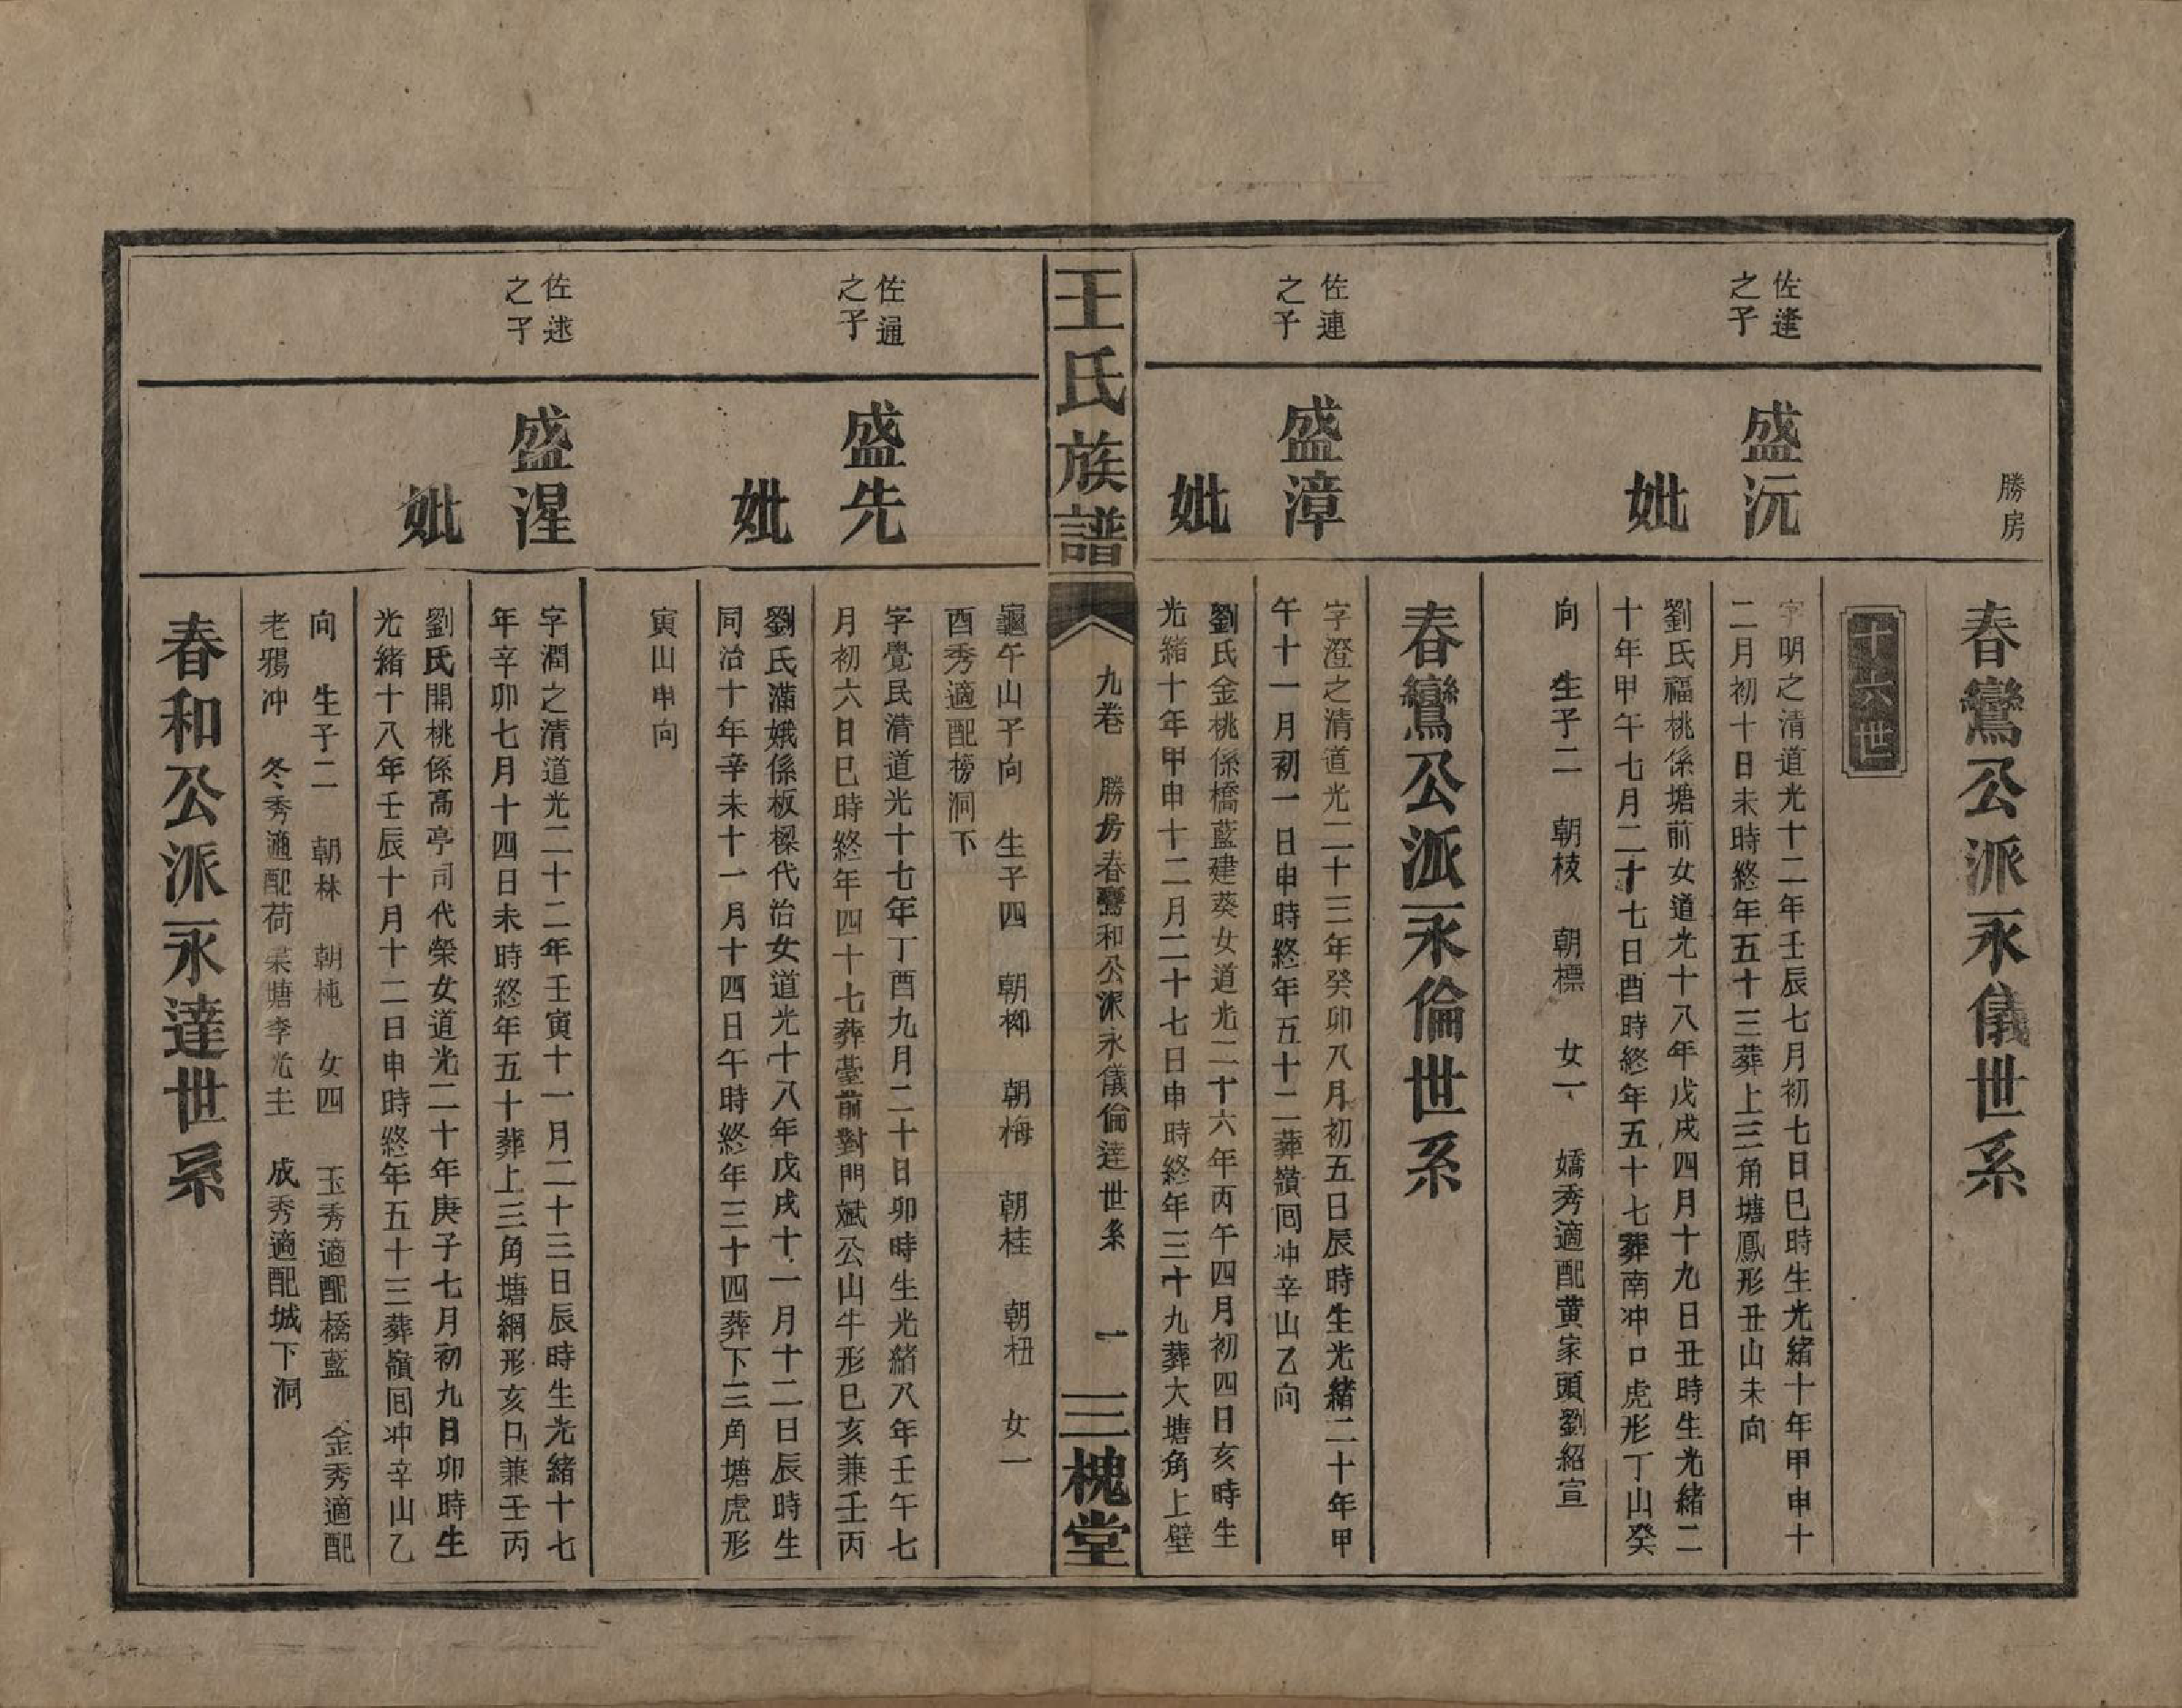 勝房
春鸞公派永儀世系
十六世
佐逢之子
盛沅
字明之清道光十二年壬辰七月初七日巳時生光緒十年甲申十
二月初十日未時終年五十三葬上三角塘鳳形丑山未向
妣
劉氏福桃係塘前女道光十八年戊戌四月十九日丑時生光緒二
十年甲午七月二十七日酉時終年五十七葬南冲口虎形丁山癸
向 生子二 朝枝 朝標 女一 嬌秀適配黄家頭劉紹宣
春鸞公派永倫世系
佐連之子
盛漳
字澄之清道光二十三年癸卯八月初五日辰時生光緒二十年甲
午十一月初一日申時終年五十二葬嶺囘冲辛山乙向
妣
劉氏金桃係橋藍建葵女道光二十六年丙午四月初四日亥時生
光緒十年甲申十二月二十七日申時終年三十九葬大塘角上壁
王氏族譜
九卷 勝房春鸞和公派永儀倫達世系 一
三槐堂
龜午山子向 生子四 朝柳 朝梅 朝桂 朝杻 女一
酉秀適配榜洞下
佐通之子
盛先
字覺民清道光十七年丁酉九月二十日卯時生光緒八年壬午七
月初六日巳時終年四十七葬臺前對門斌公山牛形巳亥兼壬丙
妣
劉氏滿娥係板樑代治女道光十八年戊戌十一月十二日辰時生
同治十年辛未十一月十四日午時終年三十四葬下三角塘虎形
寅山申向
佐逑之子
盛湦
字潤之清道光二十二年壬寅十一月二十三日辰時生光緒十七
年辛卯七月十四日未時終年五十葬上三角塘網形亥巳兼壬丙
妣
劉氏開桃係高亭司代榮女道光二十年庚子七月初九日卯時生
光緒十八年壬辰十月十二日申時終年五十三葬嶺囘冲辛山乙
向 生子二 朝林 朝杶 女四 玉秀適配橋藍 金秀適配
老鴉冲 冬秀適配荷葉塘李光主 成秀適配城下洞
春和公派永達世系